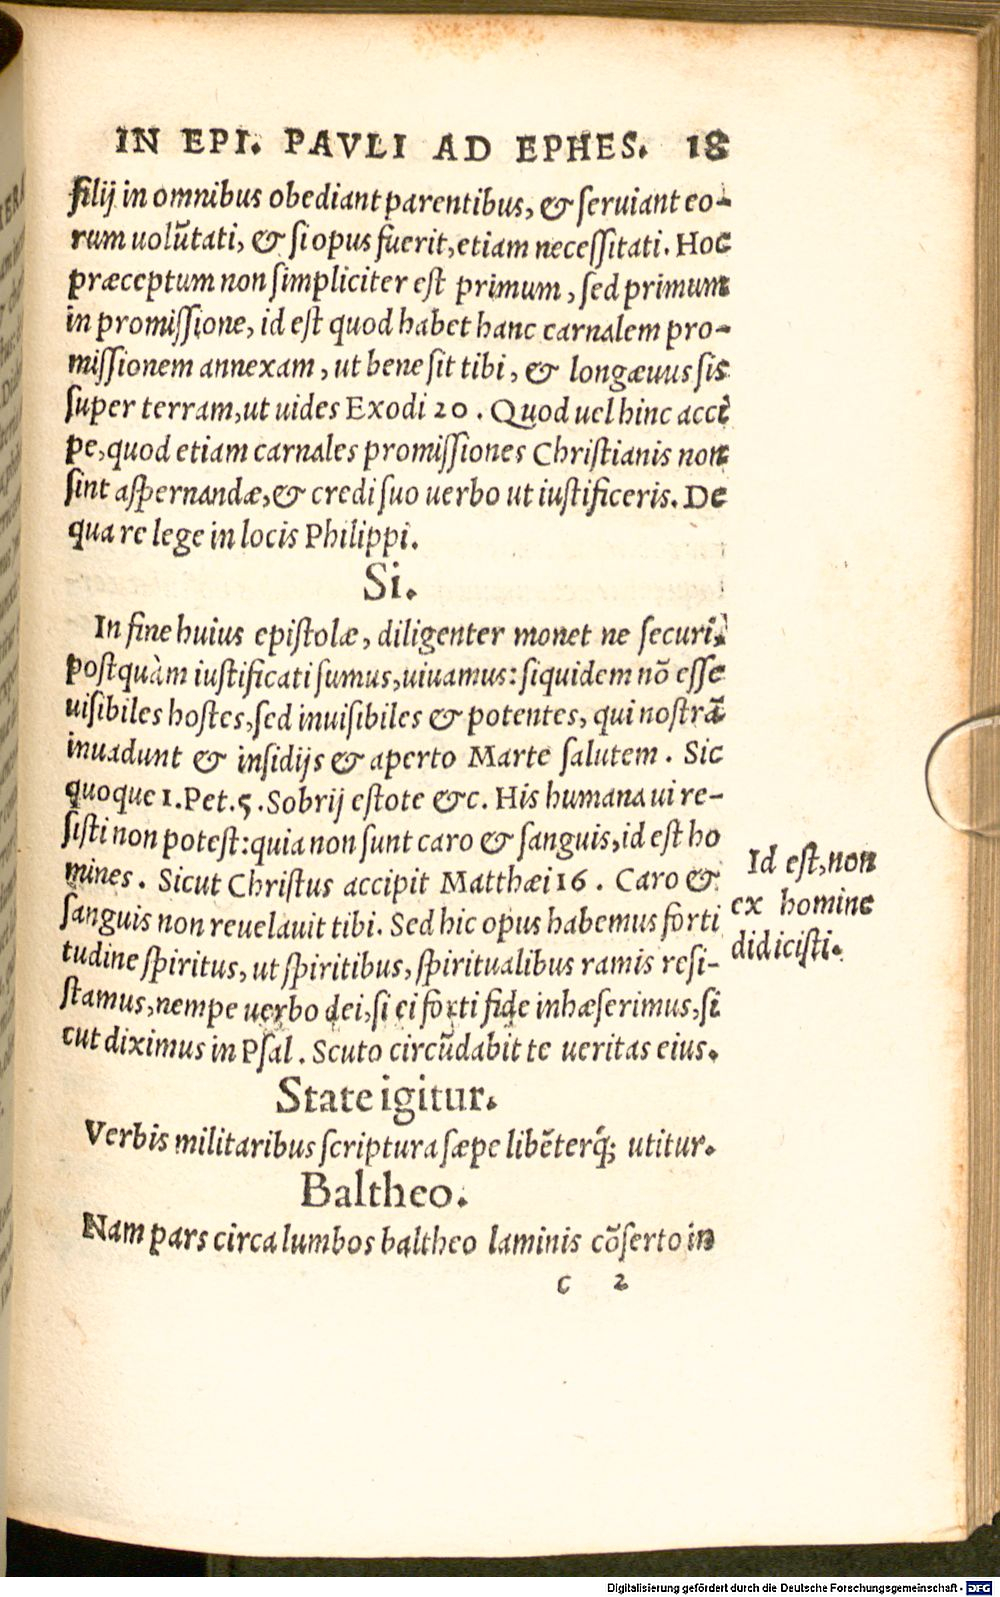 IN EPI. PAVLI AD EPHES. 18
filij in omnibus obediant parentibus, & ſeruiant eo-
rum uolũtati, & ſi opus fuerit, etiam neceſſitati. Hoc
præceptum non ſimpliciter eſt primum, ſed primum
in promiſſione, id eſt quod habet hanc carnalem pro-
miſſionem annexam, ut bene ſit tibi, & longæuus ſis
ſuper terram, ut uides Exodi 20. Quod uel hinc acci
pe, quod etiam carnales promiſſiones Chriſtianis non
ſint aſpernandæ, & credi ſuo uerbo ut iuſtificeris. De
qua re lege in locis Philippi.
Si.
In fine huius epiſtolæ, diligenter monet ne ſecuri,
poſtquàm iuſtificati ſumus, uiuamus: ſiquidem nõ eſſe
uiſibiles hoſtes, ſed inuiſibiles & potentes, qui noſtrã
inuadunt & inſidijs & aperto Marte ſalutem. Sic
quoque 1. Pet. 5. Sobrij eſtote &c. His humana ui re-
ſiſti non poteſt: quia non ſunt caro & ſanguis, id eſt ho
mines. Sicut Chriſtus accipit Matthæi 16. Caro &
ſanguis non reuelauit tibi. Sed hic opus habemus forti
tudine ſpiritus, ut ſpiritibus, ſpiritualibus ramis reſi-
ſtamus, nempe uerbo dei, ſi ei forti fide inhæſerimus, ſi
cut diximus in Pſal. Scuto circũdabit te ueritas eius.
Id eſt, non
ex homine
didiciſti.
State igitur.
Verbis militaribus ſcriptura ſæpe libẽterq́; utitur.
Baltheo.
Nam pars circa lumbos baltheo laminis cõſerto in
c 2
Digitalisierung gefördert durch die Deutsche Forschungsgemeinschaft - DFG